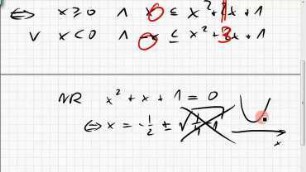 ⇔ x ≥ 0 ∧ 0 ≤ x² + 1
∨ x < 0 ∧ 0 ≤ x² + 3x + 1
NR x² + x + 1 = 0
⇔ x = -1/2 ± √(1/4 - 1)
x